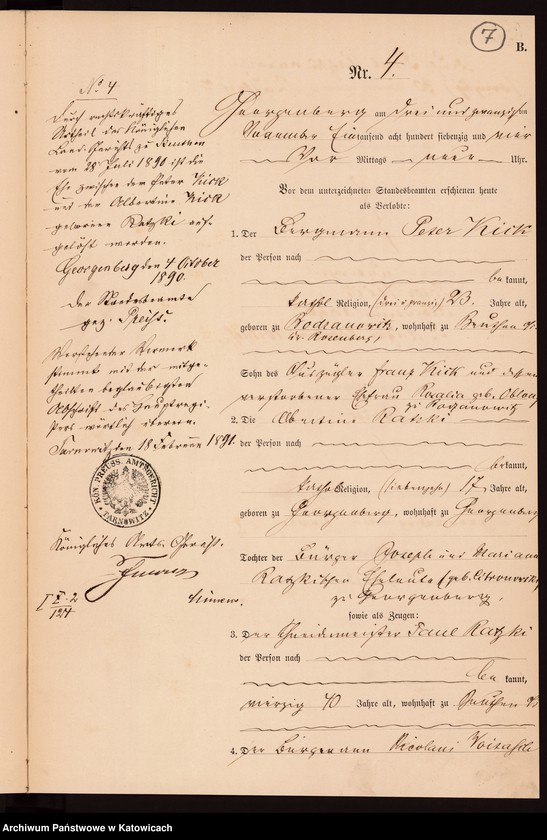 7
B.
Nr. 4.
Georgenberg am drei und zwanzigsten
November Eintausend acht hundert siebenzig und vier
Vor Mittags neun Uhr.
Vor dem unterzeichneten Standesbeamten erschienen heute
als Verlobte:
1. Der Bergmann Peter Kick
der Person nach
bekannt,
kathol Religion, (drei u zwanzig) 23. Jahre alt,
geboren zu wohnhaft zu Beuthen O/S
Kr. Rosenberg,
Sohn des Auszügler Franz Kick und dessen
verstorbenen Ehefrau Rosalia geb.
zu
2. Die Albertine Ratzki
der Person nach
bekannt,
kathol Religion, (siebenzehn) 17 Jahre alt,
geboren zu Georgenberg, wohnhaft zu Georgenberg
Tochter der Bürger Joseph und Mariann
Ratzkischen Eheleute (geb. Citronowski)
zu Georgenberg,
sowie als Zeugen:
3. Der Schneidermeister Paul Ratzki
der Person nach
bekannt,
vierzig 40 Jahre alt, wohnhaft zu Beuthen O/S
4. Der Bürgermann Nicolaus
No 4
Durch rechtskräftiges
Urtheil des Königlichen
Land-Gerichts zu Beuthen
vom 28 Juli 1890 ist die
Ehe zwischen dem Peter Kick
und der Albertine Kick
geborene Ratzki auf-
gelöst worden.
Georgenberg den 4 October
1890.
Der Standesbeamte
gez.
Vorstehender Vermerk
stimmt mit der mitge-
theilten beglaubigten
Abschrift des Hauptregi-
sters wörtlich überein.
Tarnowitz den 18 Februar 1891.
KÖN. PREUSS. AMTSGERICHT
TARNOWITZ
Königliches Amts-Gericht.